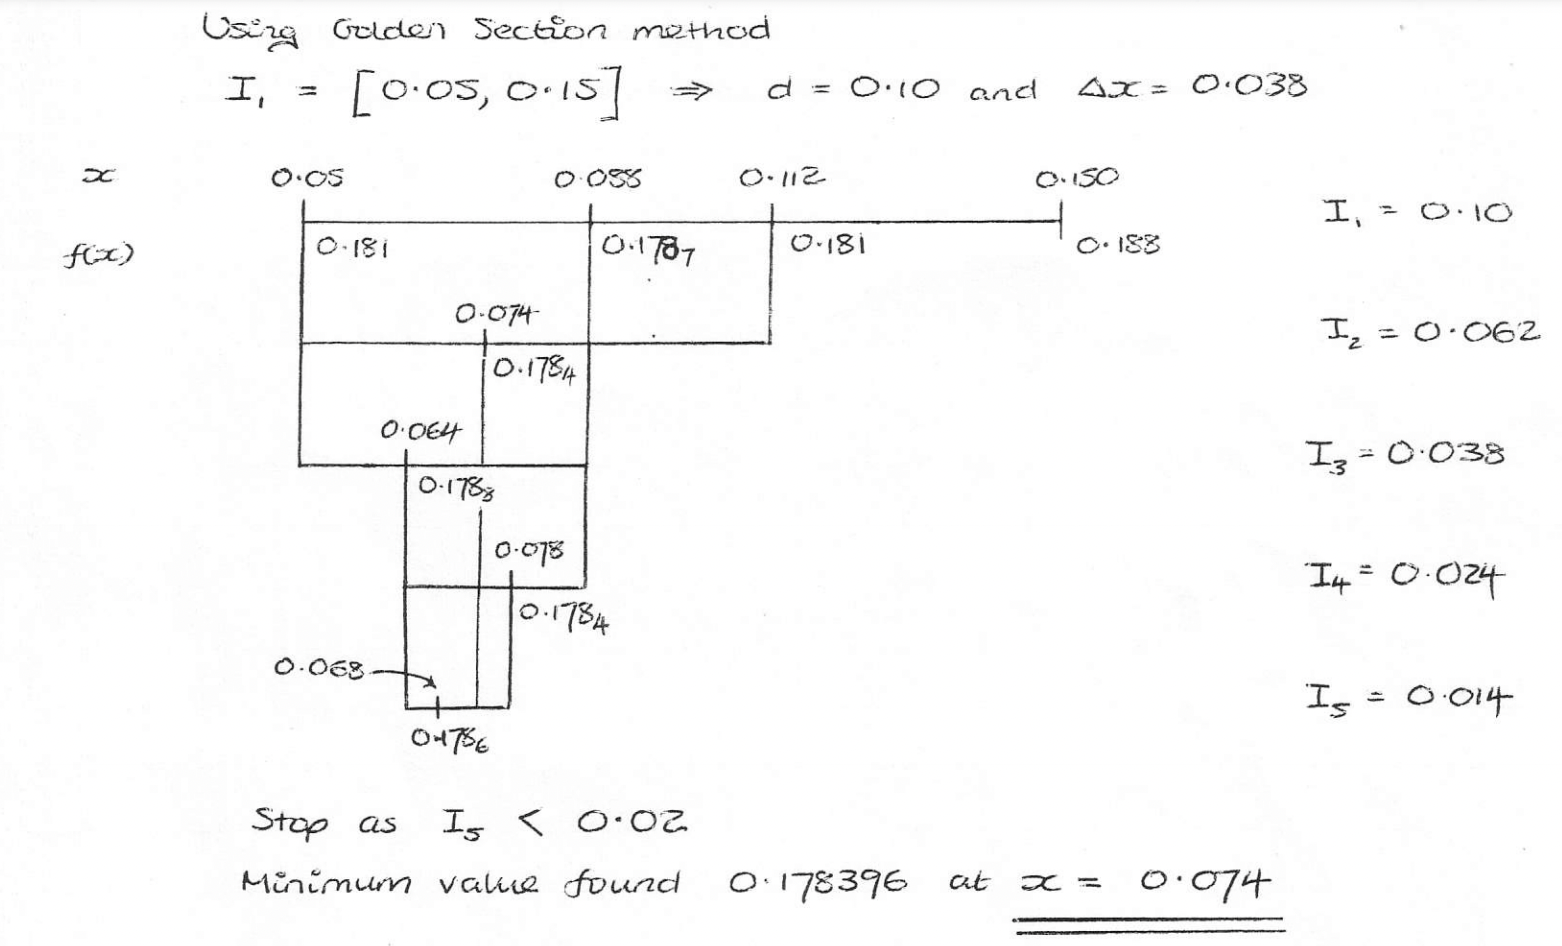 Using Golden Section method
I₁ = [0.05, 0.15] ⇒ d = 0.10 and Δx = 0.038
x 0.05 0.088 0.112 0.150
I₁ = 0.10
f(x) 0.181 0.178₇ 0.181 0.188
0.074
I₂ = 0.062
0.178₄
0.064
I₃ = 0.038
0.178₈
0.078
I₄ = 0.024
0.178₄
0.068
I₅ = 0.014
0.178₆
Stop as I₅ < 0.02
Minimum value found 0.178396 at x = 0.074